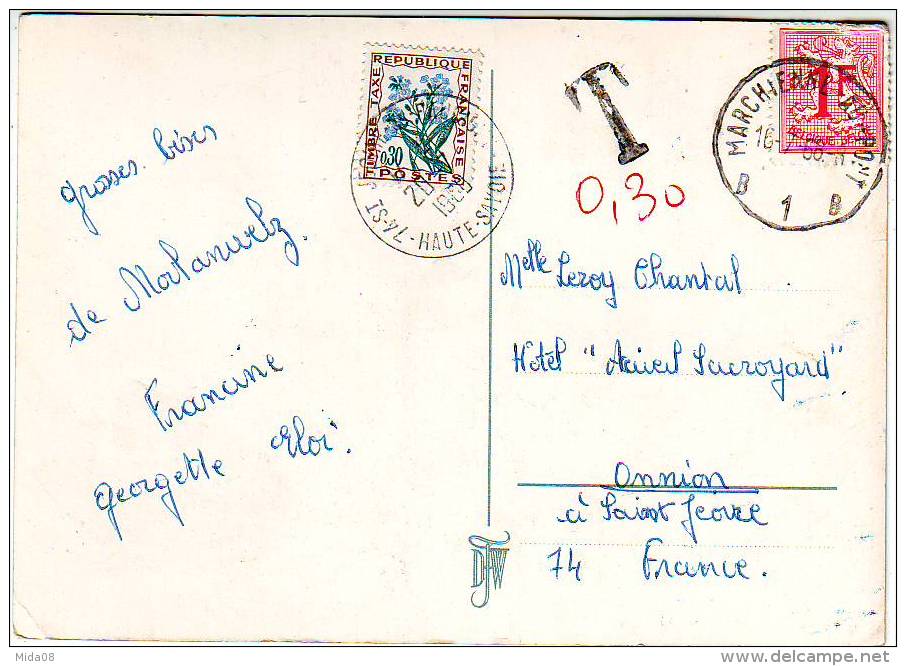 grosses bises
de Morlanwelz.
Francine
georgette Eloi.
RÉPUBLIQUE FRANÇAISE
TIMBRE TAXE
0,30
POSTES
74 - HAUTE-SAVOIE
T
0,30
1F
BELGIQUE
MARCHIENNE-AU-PONT
16
B 1 B
Melle Leroy Chantal
Hôtel "Acueil Savoyard"
Onnion
à Saint Jeoire
74 France.
DFW
Mida08
delcampe.net